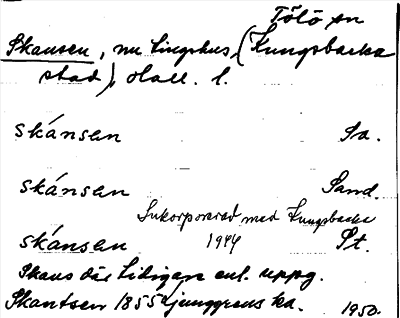 Tölö sn
Skansen, nu tingshus, (Kungsbacka
stad), Hall. l.
skánsen Sa.
skánsen Sand.
Inkorporerad med Kungsbacka
skánsen 1944 St.
Skans där tidigare enl. uppg.
Skantsen 1855 Ljunggrens ka. 1950.